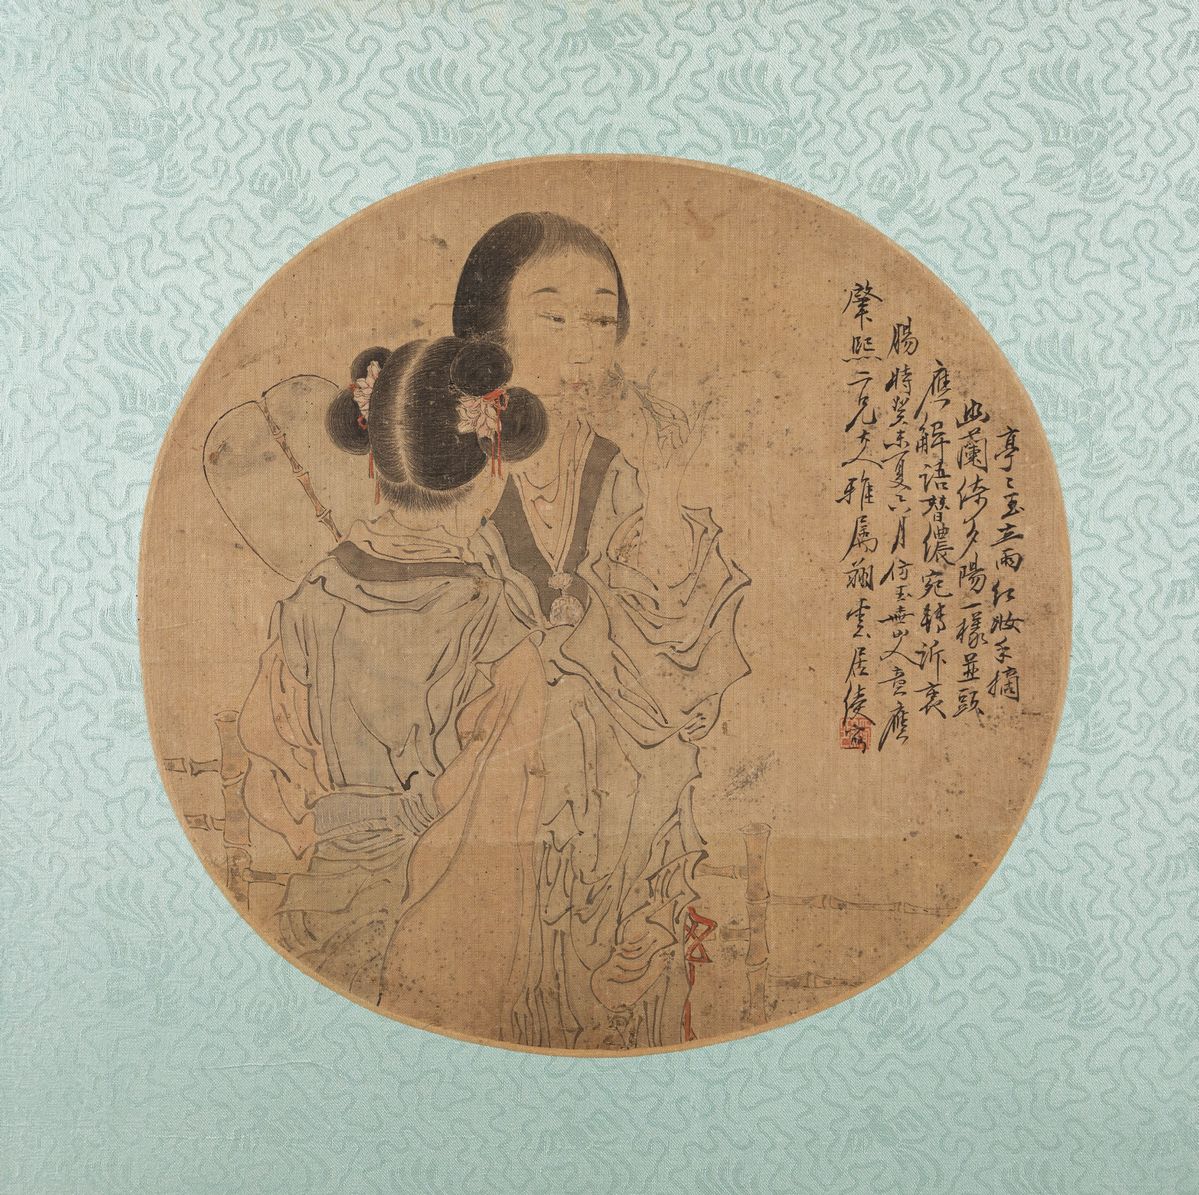 亭〻玉立兩紅妝手摘
幽蘭倚夕陽一樣並頭
應解語替儂宛轉訴衷
腸時癸未夏六月仿玉壺山人意應
肇熙二兄大人雅屬翊雲居士綾寫